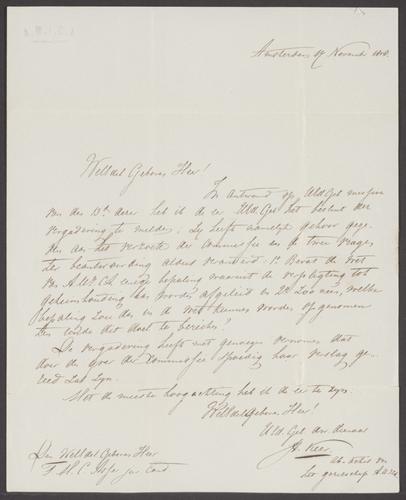 Amsterdam 17 November
Weledel Geboren Heer!
In antwoord op UEd. Geb. missive
van den 13n dezer heb ik de eer UEd. Geb. het besluit der
vergadering te melden: Zij heeft namelijk gehoor gege-
ven aan het verzoek der Commissie en de twee vragen
ter beantwoording aldus veranderd: 1o Bevat de wet
bepaling waaruit de verpligting tot
geheimhouding kan worden afgeleid en 2o Zoo neen, welke
bepaling zou dan in de wet kunnen worden opgenomen
ten einde dat doel te bereiken?
De vergadering heeft met genoegen vernomen dat
door de Commissie spoedig haar verslag ge-
reed zal zijn.
Met de meeste hoogachting heb ik de eer te zijn
WelEdelGeboren Heer!
UEd. Geb. dw. dienaar
Den WelEdel Geboren Heer
F. H. C.